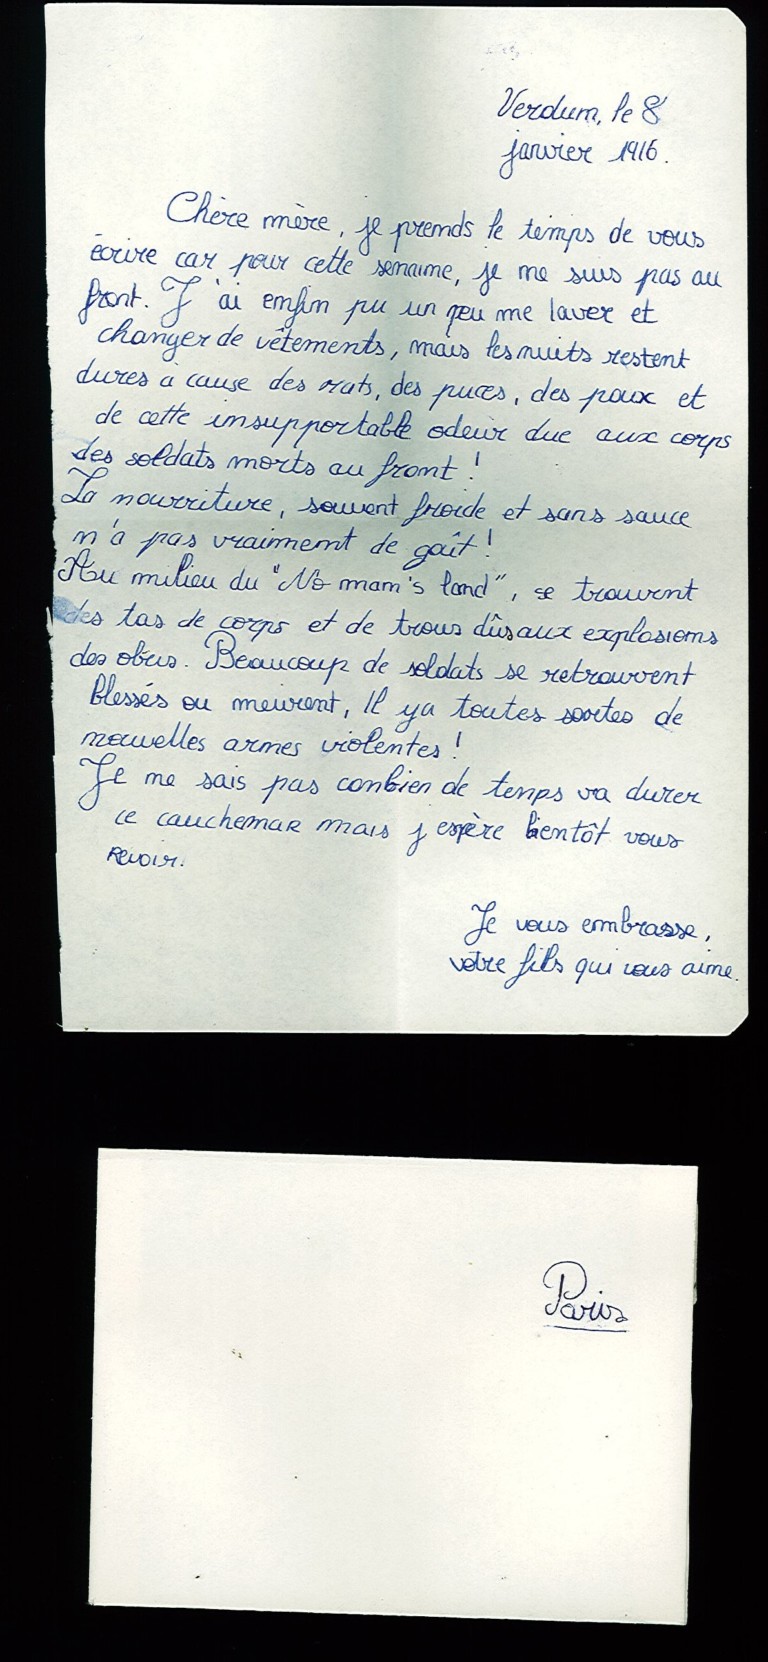 Verdun, le 8
janvier 1916.
Chère mère, je prends le temps de vous
écrire car pour cette semaine, je ne suis pas au
front. J'ai enfin pu un peu me laver et
changer de vêtements, mais les nuits restent
dures à cause des rats, des puces, des poux et
de cette insupportable odeur due aux corps
des soldats morts au front !
La nourriture, souvent froide et sans sauce
n'a pas vraiment de goût !
Au milieu du "No man's land", se trouvent
des tas de corps et de trous dûs aux explosions
des obus. Beaucoup de soldats se retrouvent
blessés ou meurent, Il y a toutes sortes de
nouvelles armes violentes !
Je ne sais pas combien de temps va durer
ce cauchemar mais j'espère bientôt vous
revoir.
Je vous embrasse,
votre fils qui vous aime.
Paris